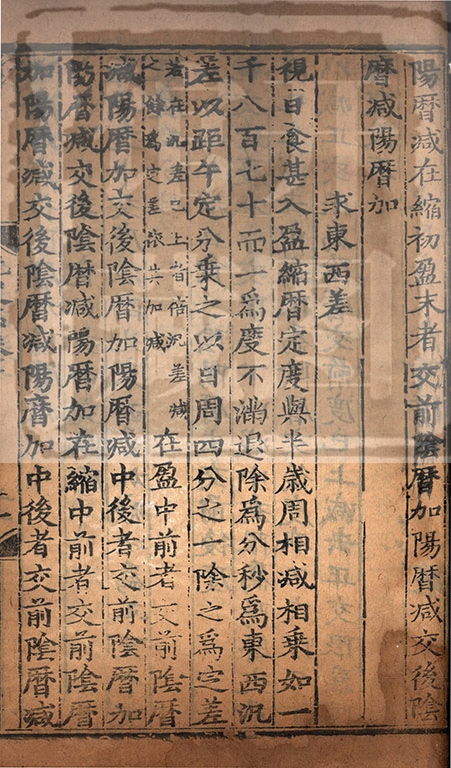 陽暦減在縮初盈末者交前陰暦加陽暦減交後陰
暦減陽暦加
求東西差
視日食甚入盈縮暦定度與半歲周相減相乗如一
千八百七十而一為度不滿退除為分秒為東西汎
差以距午定分乗之以日周四分之一除之為定差
若在汎差已上者倍汎差減
之餘為定差依其加減
在盈中前者交前陰暦
減陽暦加交後陰暦加陽暦減中後者交前陰暦加
陽暦減交後陰暦減陽暦加在縮中前者交前陰暦
加陽暦減交後陰暦減陽暦加中後者交前陰暦減